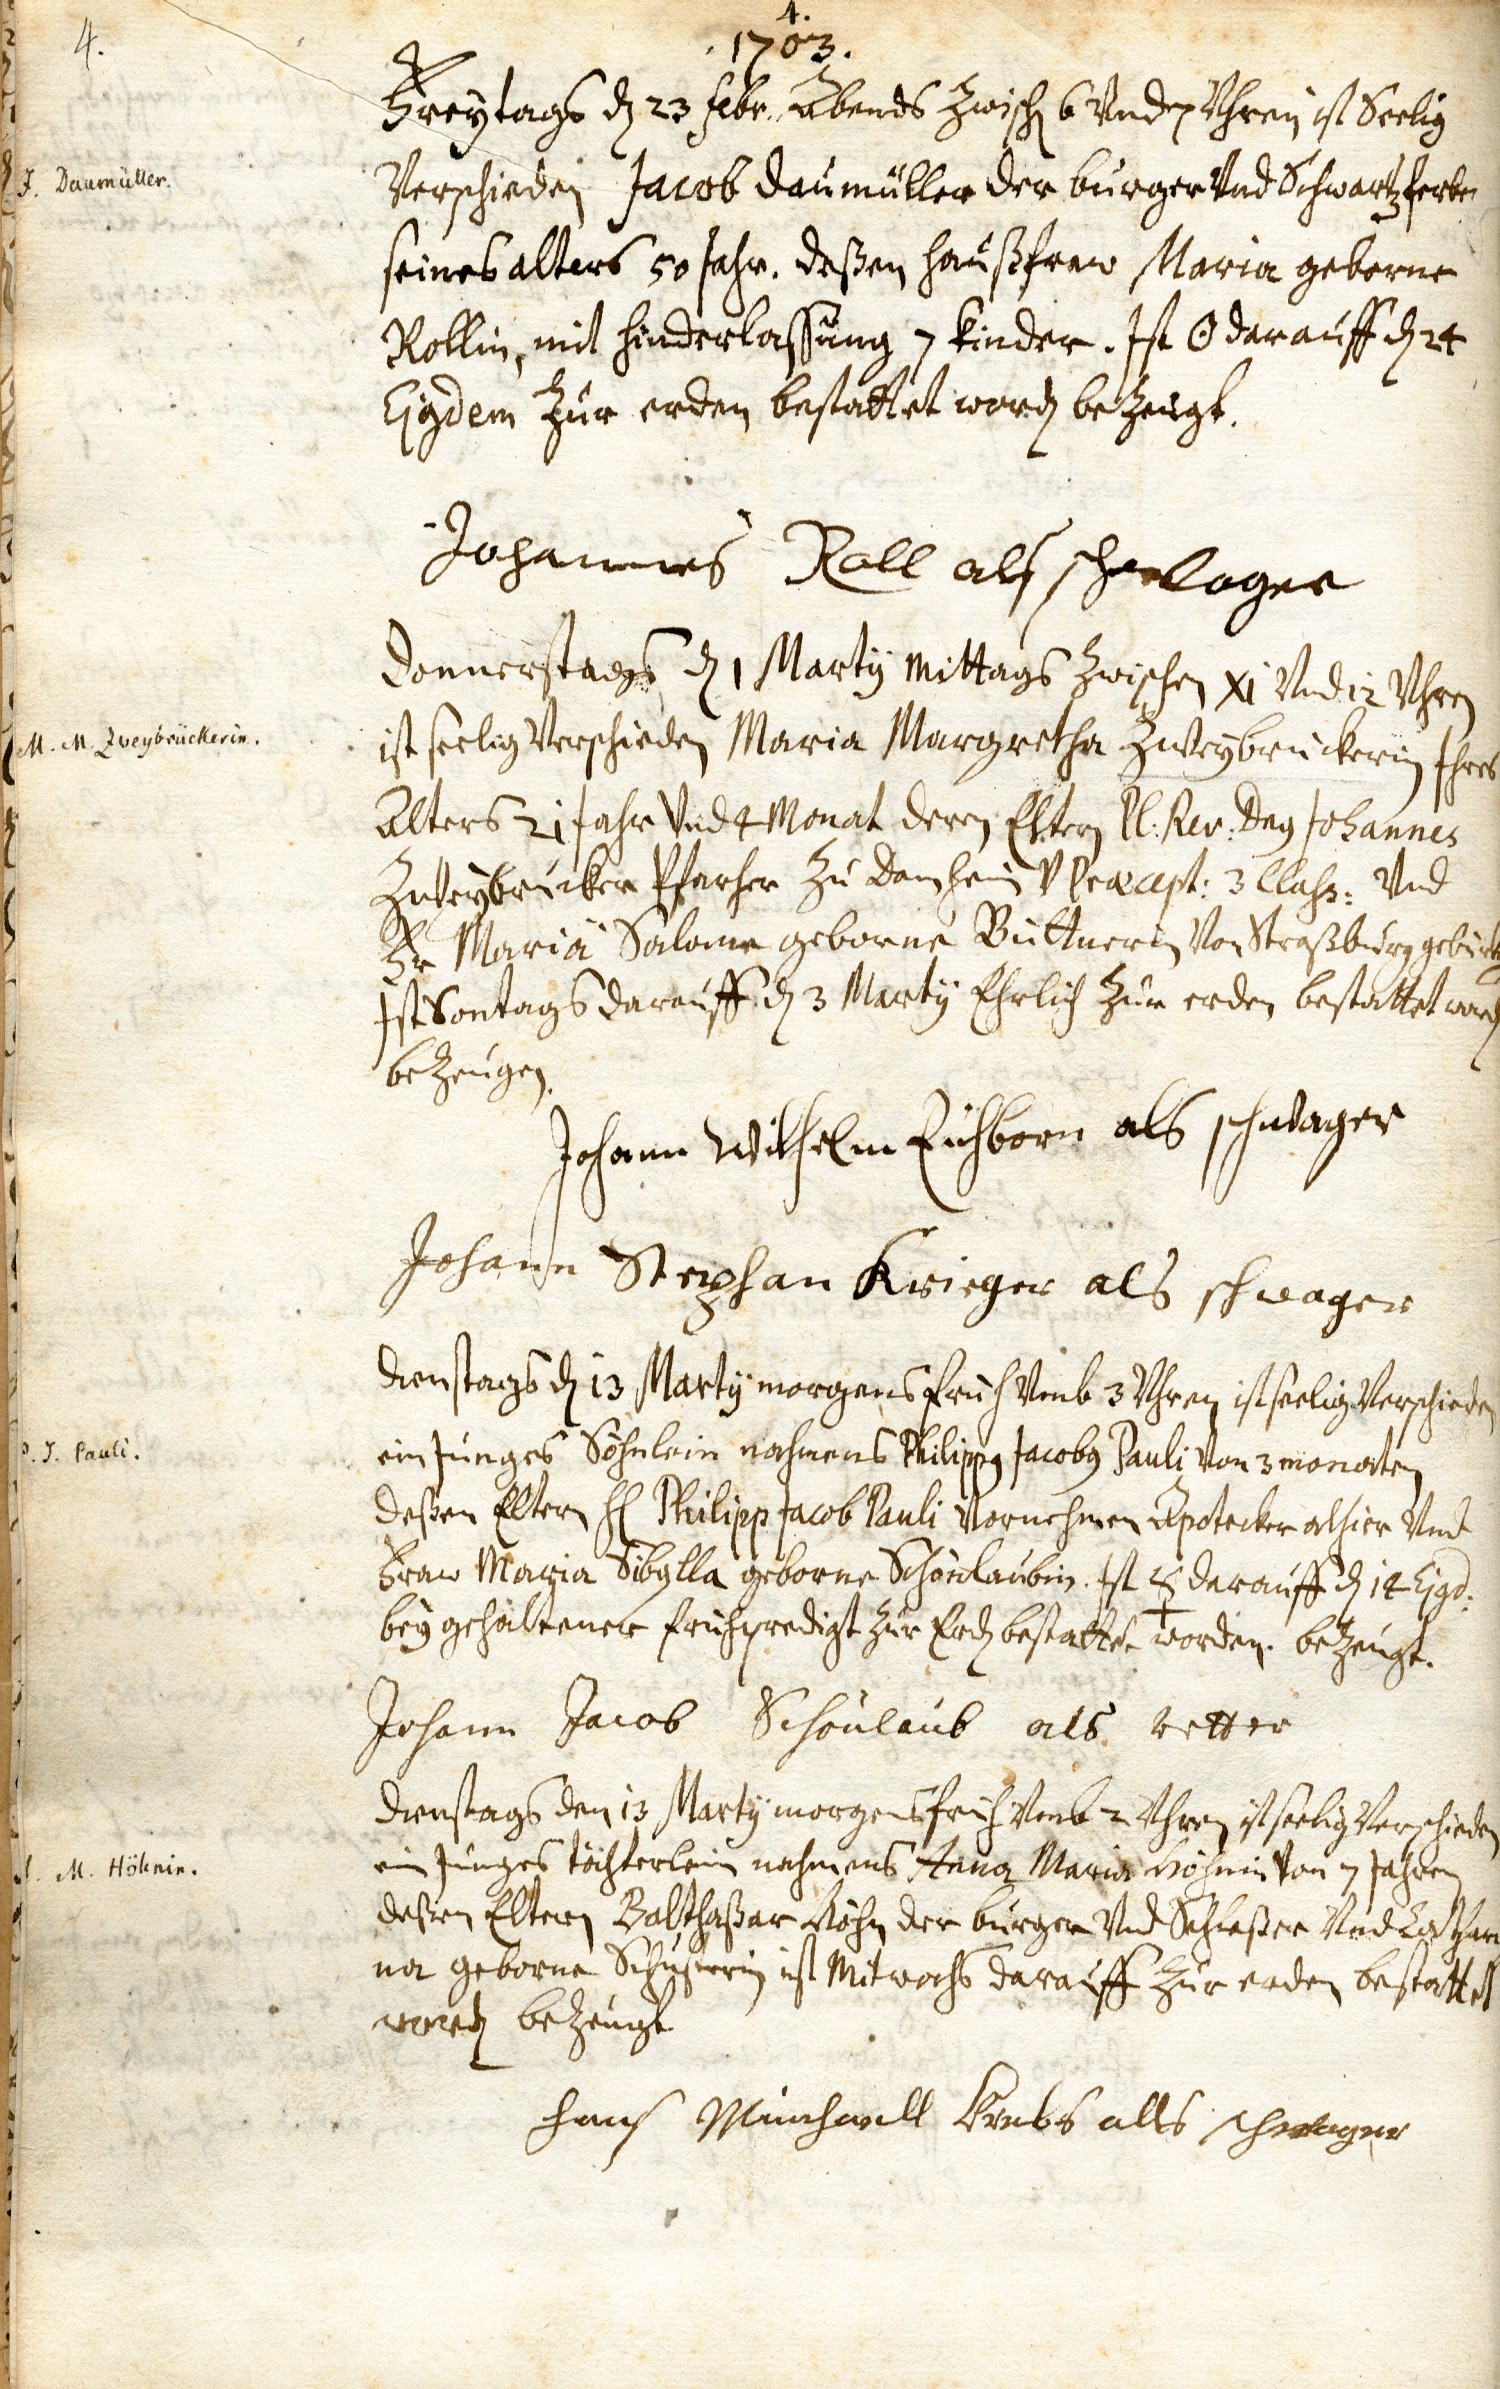 4.
4.
1703.
Freytags dẽ 23 febr. Abends zwischẽ 6 Vnd 7 Vhren ist Seelig
J. Daumüller.
Verschieden Jacob Daumüller der burger Vnd Schwartzferber
seines alters 50 Jahr. deßen haußfraw Maria geborne
Rollin, mit hinderlassung 7 Kinder. Ist ☉ darauff dẽ 24
Ejusdem zur erden bestattet wordẽ bezeugt.
Johannes Roll als schwager
Donnerstags dẽ 1 Martij Mittags zwischen XI Vnd 12 Vhren
M. M. Zveybrückerin.
ist seelig Verschieden Maria Margretha Zweybruckerin Ihres
Alters 21 Jahr Vnd 4 Monat deren Eltern Pl: Rev: Dns Johannes
Zweybrucker Pfarher zu Danheim V Praecept: 3 Class: Vnd
Fr Maria Salome geborne Buttnerin Von Straßburg gebürtig
Ist Sontags darauff dẽ 3 Martij Ehrlich zur erden bestattet wordẽ
bezeugen.
Johann Wilhelm Eichborn als schwager
Johann Stephan Krieger als schwager
Dienstags dẽ 13 Martij morgens fruh Vmb 3 Vhren ist seelig Verschieden
P. J. Pauli.
ein Junges Söhnlein nahmens Philippus Jacobus Pauli Von 3 monaten
deßen Eltern H Philipp Jacob Pauli Vornehmen Apotecker alhier Vnd
Fraw Maria Sibylla geborne Schönlaubin. Ist ☿ darauff dẽ 14 Ejusd:
bey gehaltener fruhpredigt zur Erdẽ bestattet worden. bezeugt.
Johann Jacob Schönlaub als vetter
Dienstags den 13 Martij morgens fruh Vmb 2 Vhren ist seelig Verschieden
M. Höhnin.
ein Junges töchterlein nahmens Anna Maria Höhnin Von 7 Jahren
deßen Eltern Balthaßar Höhn der burger Vnd Schloßer Vnd Cathari
na geborne Schusterin ist Mitwochs darauff zur erden bestattet
wordẽ bezeugt
hans Krebs alls schwager